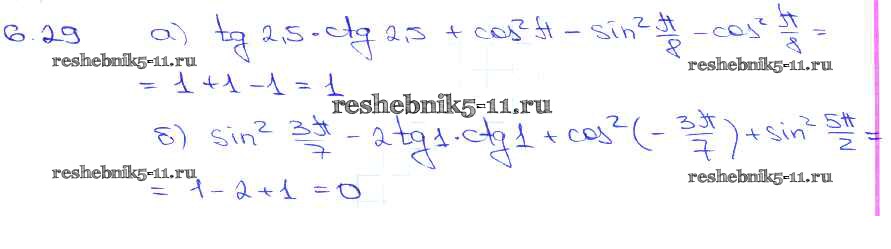 6.29 а) tg 2,5 · ctg 2,5 + cos² π − sin² π/8 − cos² π/8 =
reshebnik5-11.ru reshebnik5-11.ru
= 1 + 1 − 1 = 1
reshebnik5-11.ru
б) sin² 3π/7 − 2 tg 1 · ctg 1 + cos² (− 3π/7) + sin² 5π/2 =
reshebnik5-11.ru reshebnik5-11.ru
= 1 − 2 + 1 = 0